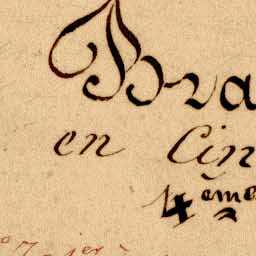 Bra
en Cin
4eme